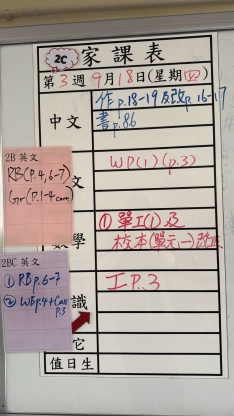 2C 家課表
第3週9月18日(星期四)
中文 作p.18-19及改p.16-17
書p.86
2B 英文
RB(P.4, 6-7)
Gr(P.1-4 corr.)
文 WP(1)(p.3)
數學 ①單工(1)及
校本(單元一)改正
2BC 英文
① RB p.6-7
② WB p.4+Corr
p.3
識 工P.3
它
值日生